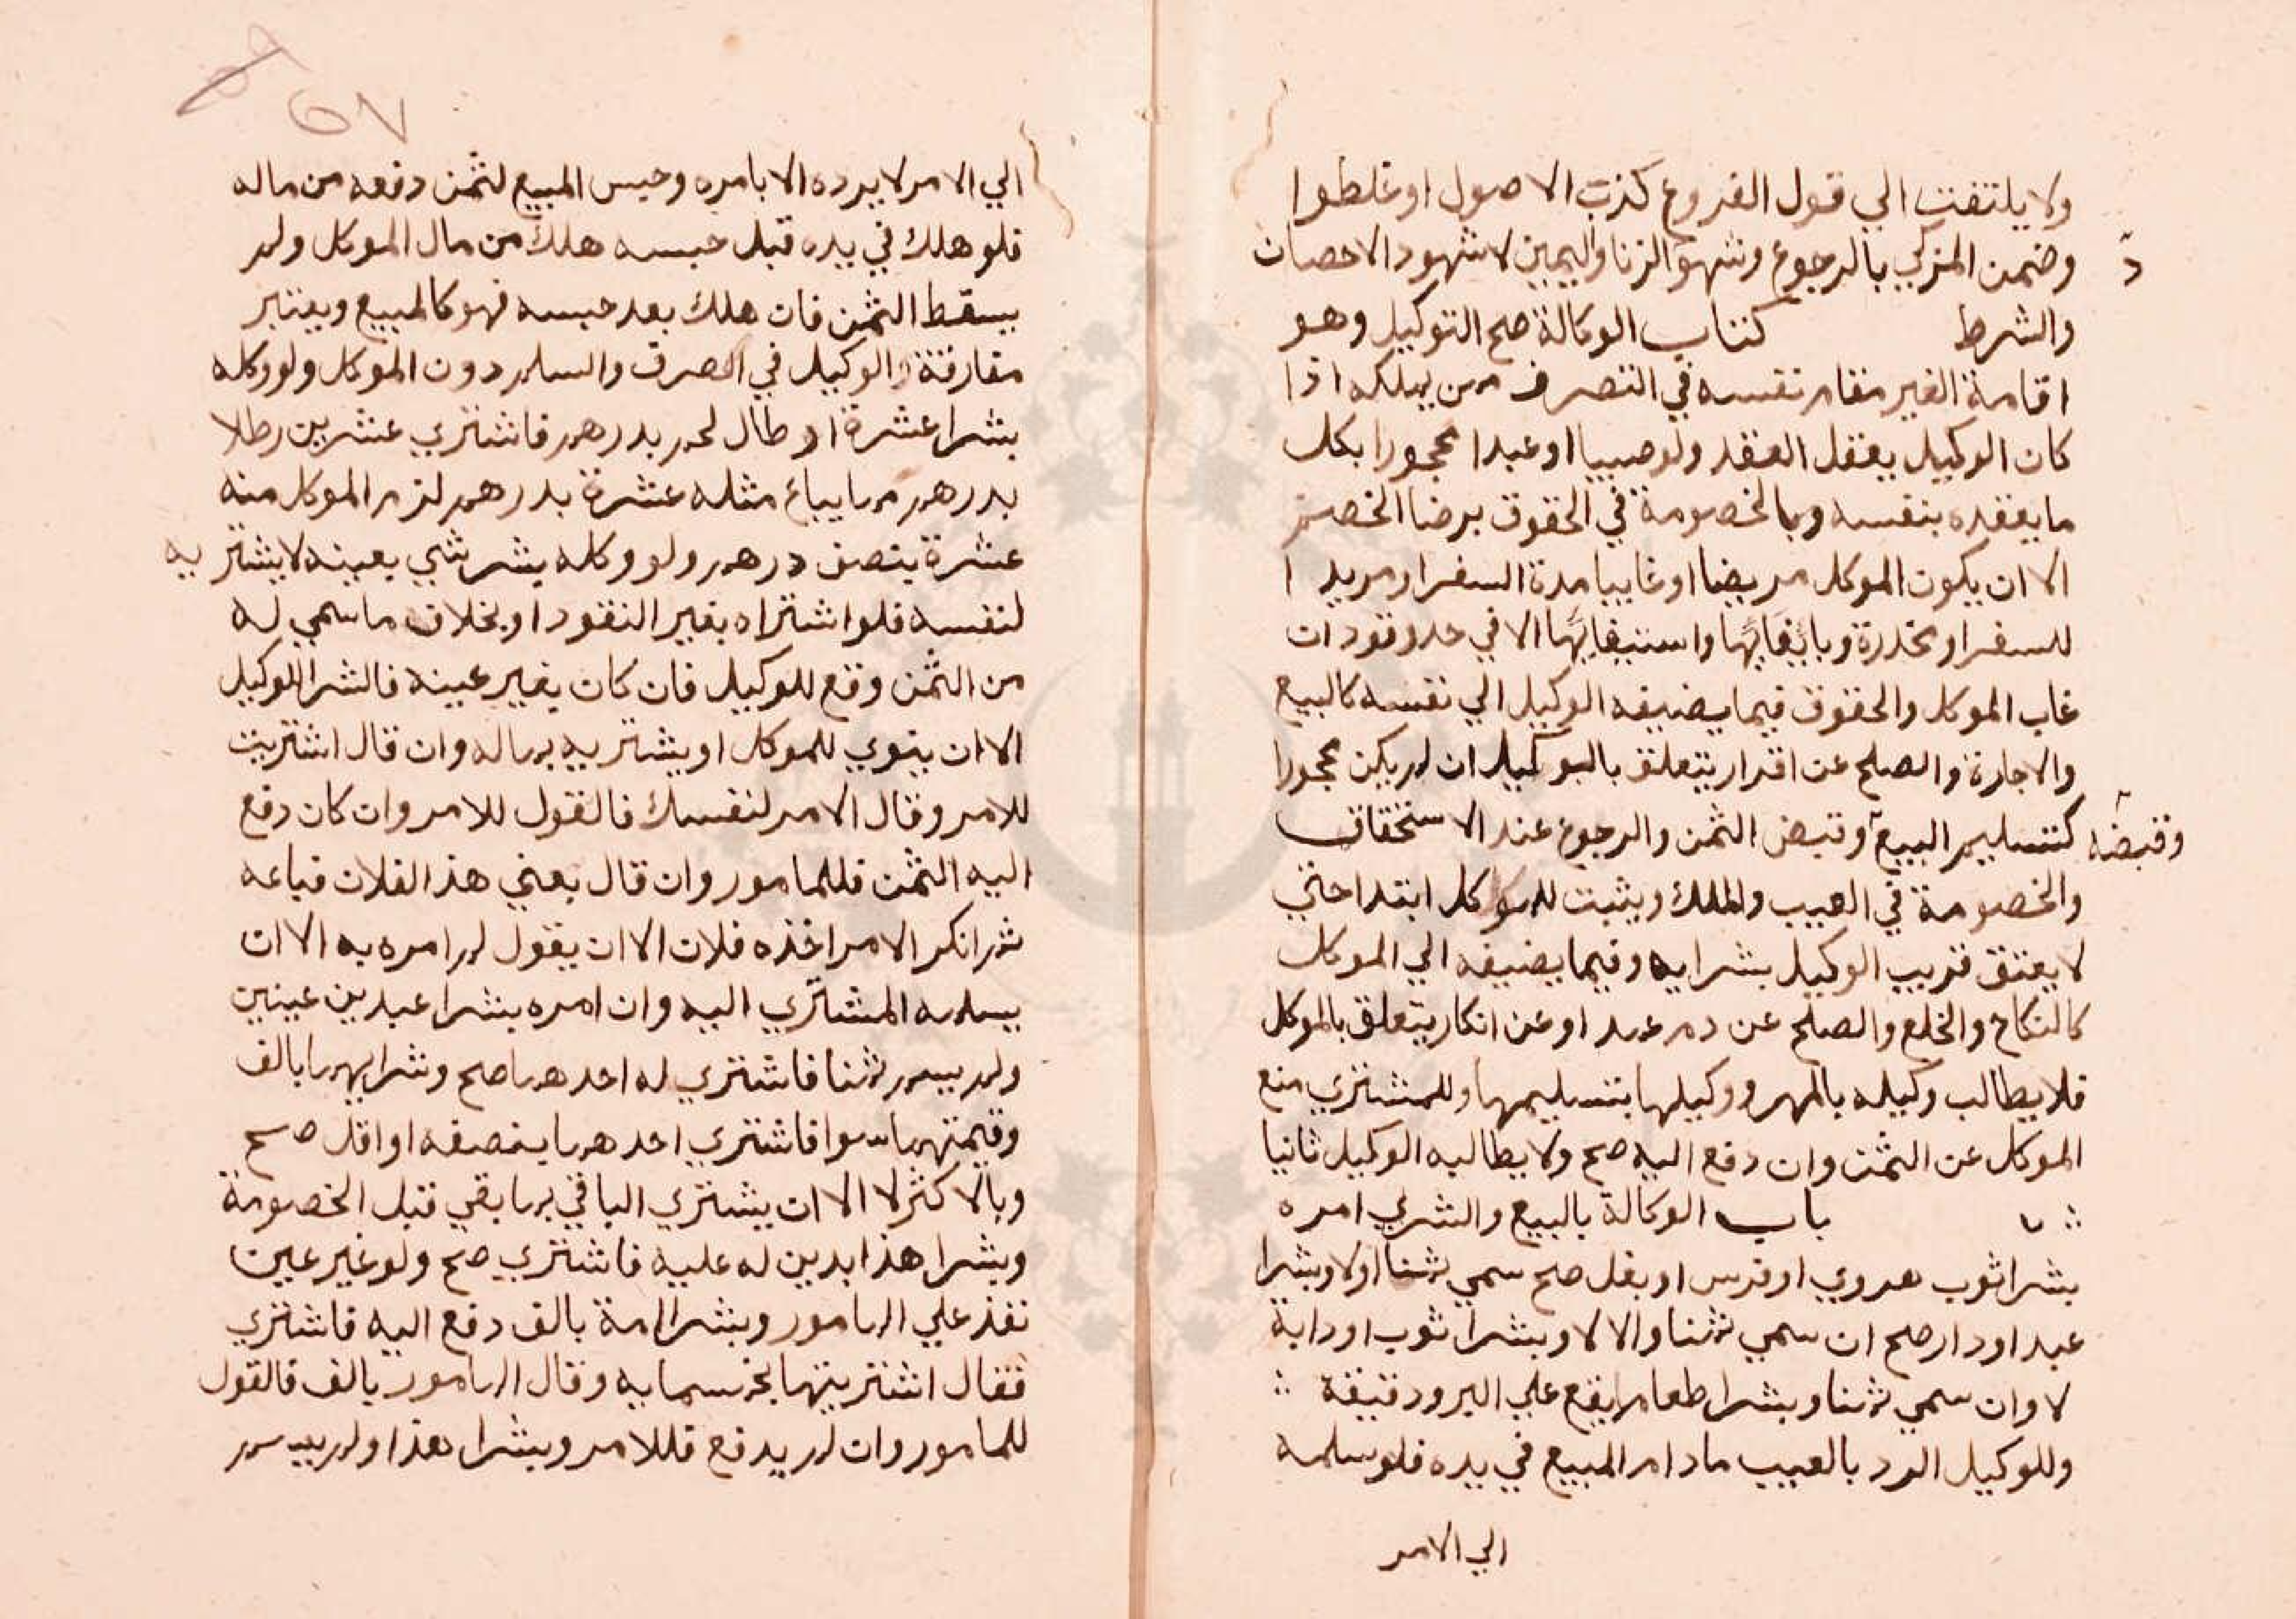 ولا يلتفت الي قول الفروع كذب الاصول او غلطوا
وضمن المزكي بالرجوع وشهود الزنا واليمين لا شهود الاحصان
والشرط كتاب الوكالة صح التوكيل وهو
اقامة الغير مقام نفسه في التصرف ممن يملكه اذا
كان الوكيل يعقل العقد ولو صبيا او عبدا محجورا بكل
ما يعقده بنفسه وبالخصومة في الحقوق برضا الخصم
الا ان يكون الموكل مريضا او غايبا مدة السفر او مريدا
للسفر او مخدرة وبايفايها واستيفايها الا في حد وقود ان
غاب الموكل والحقوق فيما يضيفه الوكيل الي نفسه كالبيع
والاجارة والصلح عن اقرار يتعلق بالوكيل ان لم يكن محجورا
كتسليم المبيع وقبضه وقبض الثمن والرجوع عند الاستحقاق
والخصومة في العيب والملك ويثبت للموكل ابتدا حتي
لا يعتق قريب الوكيل بشرايه وفيما يضيفه الي الموكل
كالنكاح والخلع والصلح عن دم عمد او عن انكار يتعلق بالموكل
فلا يطالب وكيله بالمهر ووكيلها بتسليمها وللمشتري منع
الموكل عن الثمن وان دفع اليه صح ولا يطالبه الوكيل ثانيا
باب الوكالة بالبيع والشري امره
بشرا ثوب هروي او فرس او بغل صح سمي ثمنا اولا وبشرا
عبد او دار صح ان سمي ثمنا والا لا وبشرا ثوب او دابة
لا وان سمي ثمنا وبشرا طعام يقع علي البر ودقيقة
وللوكيل الرد بالعيب ما دام المبيع في يده فلو سلمه
الي الامر
الي الامر لا يرده الا بامره وحبس المبيع لثمن دفعه من ماله
فلو هلك في يده قبل حبسه هلك من مال الموكل ولم
يسقط الثمن فان هلك بعد حبسه فهو كالمبيع ويعتبر
مفارقة الوكيل في الصرف والسلم دون الموكل ولو وكله
بشرا عشرة ارطال لحم بدرهم فاشتري عشرين رطلا
بدرهم مما يباع مثله عشرة بدرهم لزم الموكل منه
عشرة بنصف درهم ولو وكله بشر شي بعينه لا يشتريه
لنفسه فلو اشتراه بغير النقود او بخلاف ما سمي له
من الثمن وقع للوكيل فان كان بغير عينه فالشرا للوكيل
الا ان ينوي للموكل او يشتريه بماله وان قال اشتريت
للامر وقال الامر لنفسك فالقول للامر وان كان دفع
اليه الثمن فللمامور وان قال بعني هذا لفلان فباعه
ثم انكر الامر اخذه فلان الا ان يقول لم امره به الا ان
يسلمه المشتري اليه وان امره بشرا عبدين عينين
ولم يسم ثمنا فاشتري له احدهما صح وشرايهما بالف
وقيمتهما سوا فاشتري احدهما بنصفه او اقل صح
وبالاكثر لا الا ان يشتري الباقي بما بقي قبل الخصومة
وبشرا هذا بدين له عليه فاشتري صح ولو غير عين
نفذ علي المامور وبشرا امة بالف دفع اليه فاشتري
فقال اشتريتها بخمسمايه وقال المامور بالف فالقول
للمامور وان لم يدفع فللامر وبشرا هذا ولم يسم